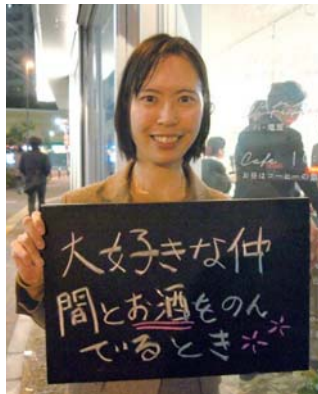 Cafe
大好きな仲
間とお酒をのん
でるとき